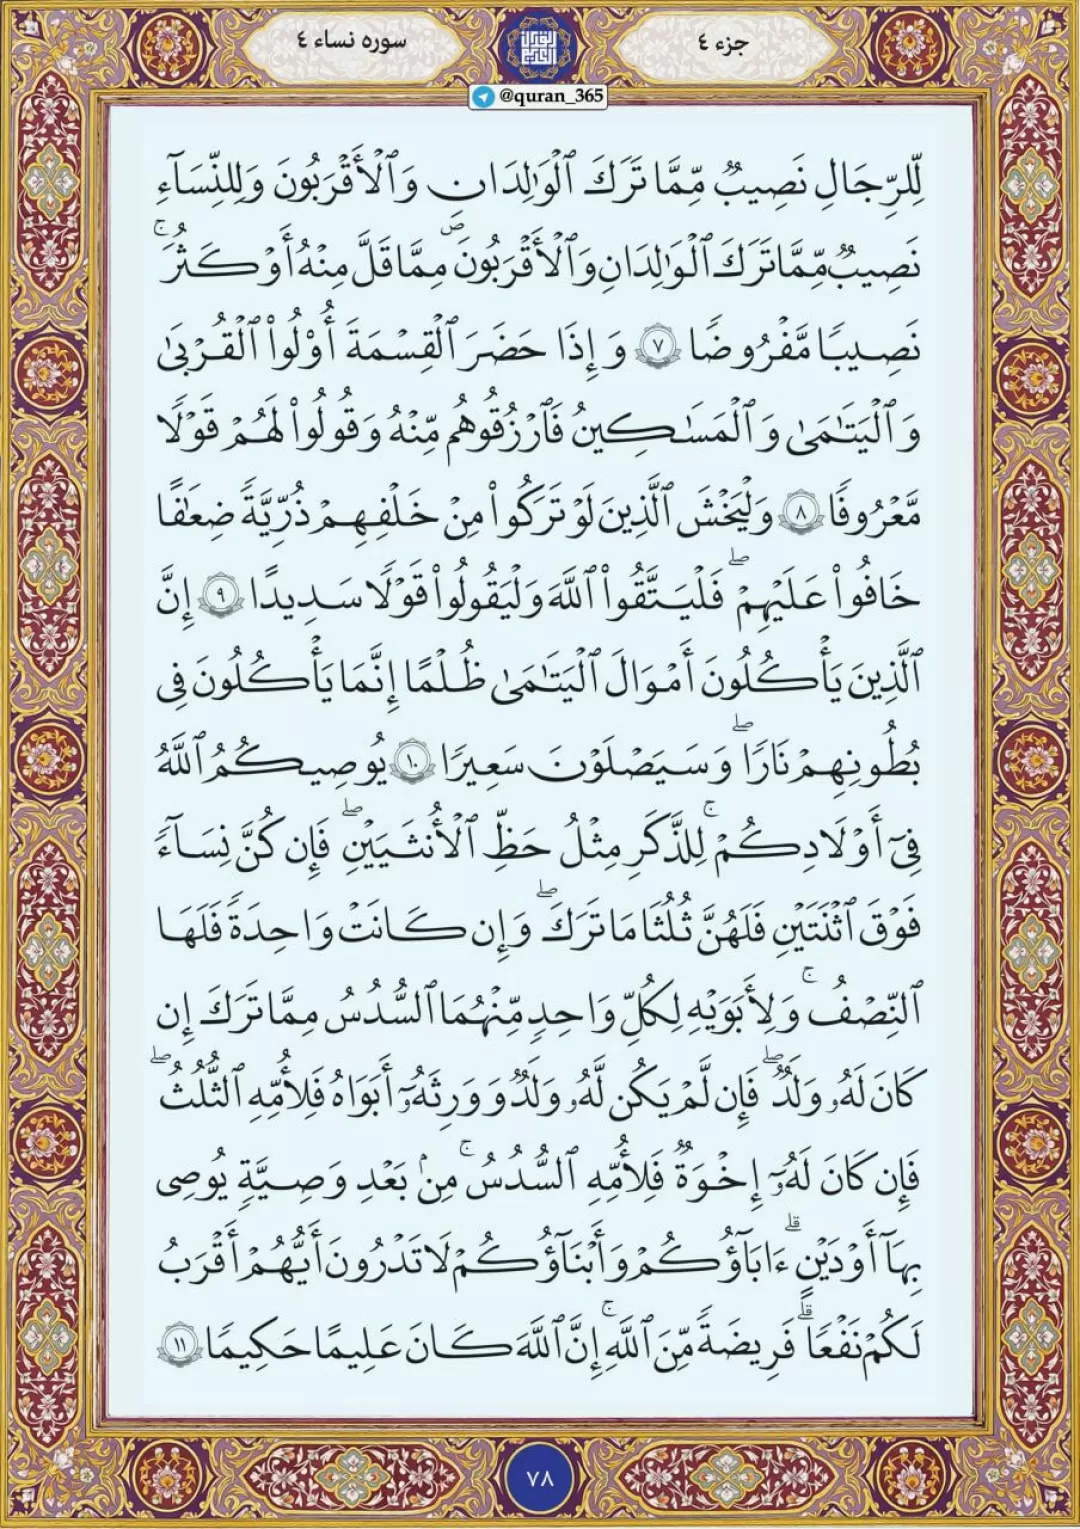 جزء ٤
سوره نساء ٤
@quran_365
لِّلرِّجَالِ نَصِيبٌ مِّمَّا تَرَكَ ٱلْوَٰلِدَانِ وَٱلْأَقْرَبُونَ وَلِلنِّسَآءِ
نَصِيبٌ مِّمَّا تَرَكَ ٱلْوَٰلِدَانِ وَٱلْأَقْرَبُونَ مِمَّا قَلَّ مِنْهُ أَوْ كَثُرَ ۚ
نَصِيبًا مَّفْرُوضًا ٧ وَإِذَا حَضَرَ ٱلْقِسْمَةَ أُو۟لُوا۟ ٱلْقُرْبَىٰ
وَٱلْيَتَٰمَىٰ وَٱلْمَسَٰكِينُ فَٱرْزُقُوهُم مِّنْهُ وَقُولُوا۟ لَهُمْ قَوْلًا
مَّعْرُوفًا ٨ وَلْيَخْشَ ٱلَّذِينَ لَوْ تَرَكُوا۟ مِنْ خَلْفِهِمْ ذُرِّيَّةً ضِعَٰفًا
خَافُوا۟ عَلَيْهِمْ ۖ فَلْيَتَّقُوا۟ ٱللَّهَ وَلْيَقُولُوا۟ قَوْلًا سَدِيدًا ٩ إِنَّ
ٱلَّذِينَ يَأْكُلُونَ أَمْوَالَ ٱلْيَتَٰمَىٰ ظُلْمًا إِنَّمَا يَأْكُلُونَ فِى
بُطُونِهِمْ نَارًا ۖ وَسَيَصْلَوْنَ سَعِيرًا ١٠ يُوصِيكُمُ ٱللَّهُ
فِىٓ أَوْلَادِكُمْ ۚ لِلذَّكَرِ مِثْلُ حَظِّ ٱلْأُنثَيَيْنِ ۖ فَإِن كُنَّ نِسَآءً
فَوْقَ ٱثْنَتَيْنِ فَلَهُنَّ ثُلُثَا مَا تَرَكَ ۖ وَإِن كَانَتْ وَاحِدَةً فَلَهَا
ٱلنِّصْفُ ۚ وَلِأَبَوَيْهِ لِكُلِّ وَاحِدٍ مِّنْهُمَا ٱلسُّدُسُ مِمَّا تَرَكَ إِن
كَانَ لَهُۥ وَلَدٌ ۖ فَإِن لَّمْ يَكُن لَّهُۥ وَلَدٌ وَوَرِثَهُۥٓ أَبَوَاهُ فَلِأُمِّهِ ٱلثُّلُثُ ۖ
فَإِن كَانَ لَهُۥٓ إِخْوَةٌ فَلِأُمِّهِ ٱلسُّدُسُ ۚ مِنۢ بَعْدِ وَصِيَّةٍ يُوصِى
بِهَآ أَوْ دَيْنٍ ۗ ءَابَآؤُكُمْ وَأَبْنَآؤُكُمْ لَا تَدْرُونَ أَيُّهُمْ أَقْرَبُ
لَكُمْ نَفْعًا ۗ فَرِيضَةً مِّنَ ٱللَّهِ ۚ إِنَّ ٱللَّهَ كَانَ عَلِيمًا حَكِيمًا ١١
٧٨